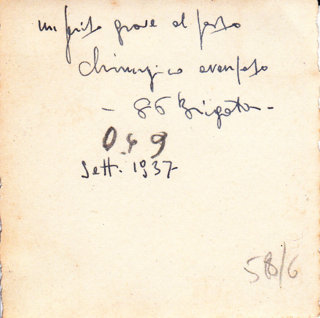 un ferito grave al posto
chirurgico avanzato
- 86 Brigata -
049
Sett. 1937
58/6